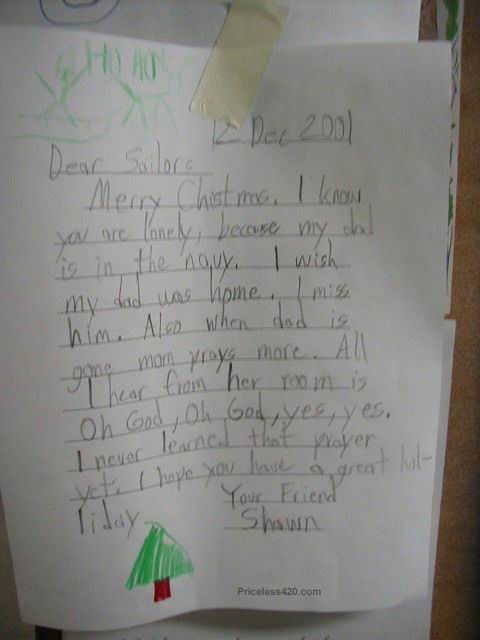 HO HO
12 Dec 2001
Dear Sailors
Merry Chistmas. I know
you are lonely, because my dad
is in the navy. I wish
my dad was home. I miss
him. Also when dad is
gone mom prays more. All
I hear from her room is
Oh God, Oh God, yes, yes.
I never learned that prayer
yet. I hope you have a great hol-
liday
Your Friend
Shawn
Priceless420.com